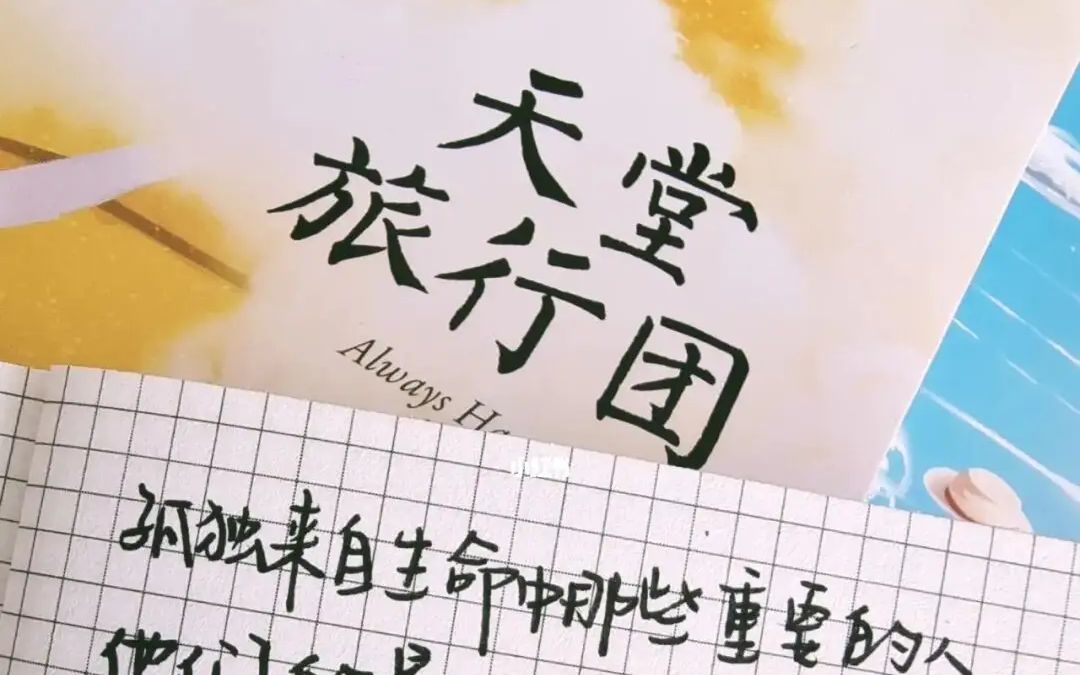 天堂
旅行团
Always H
小红书
孤独来自生命中那些重要的人
他们